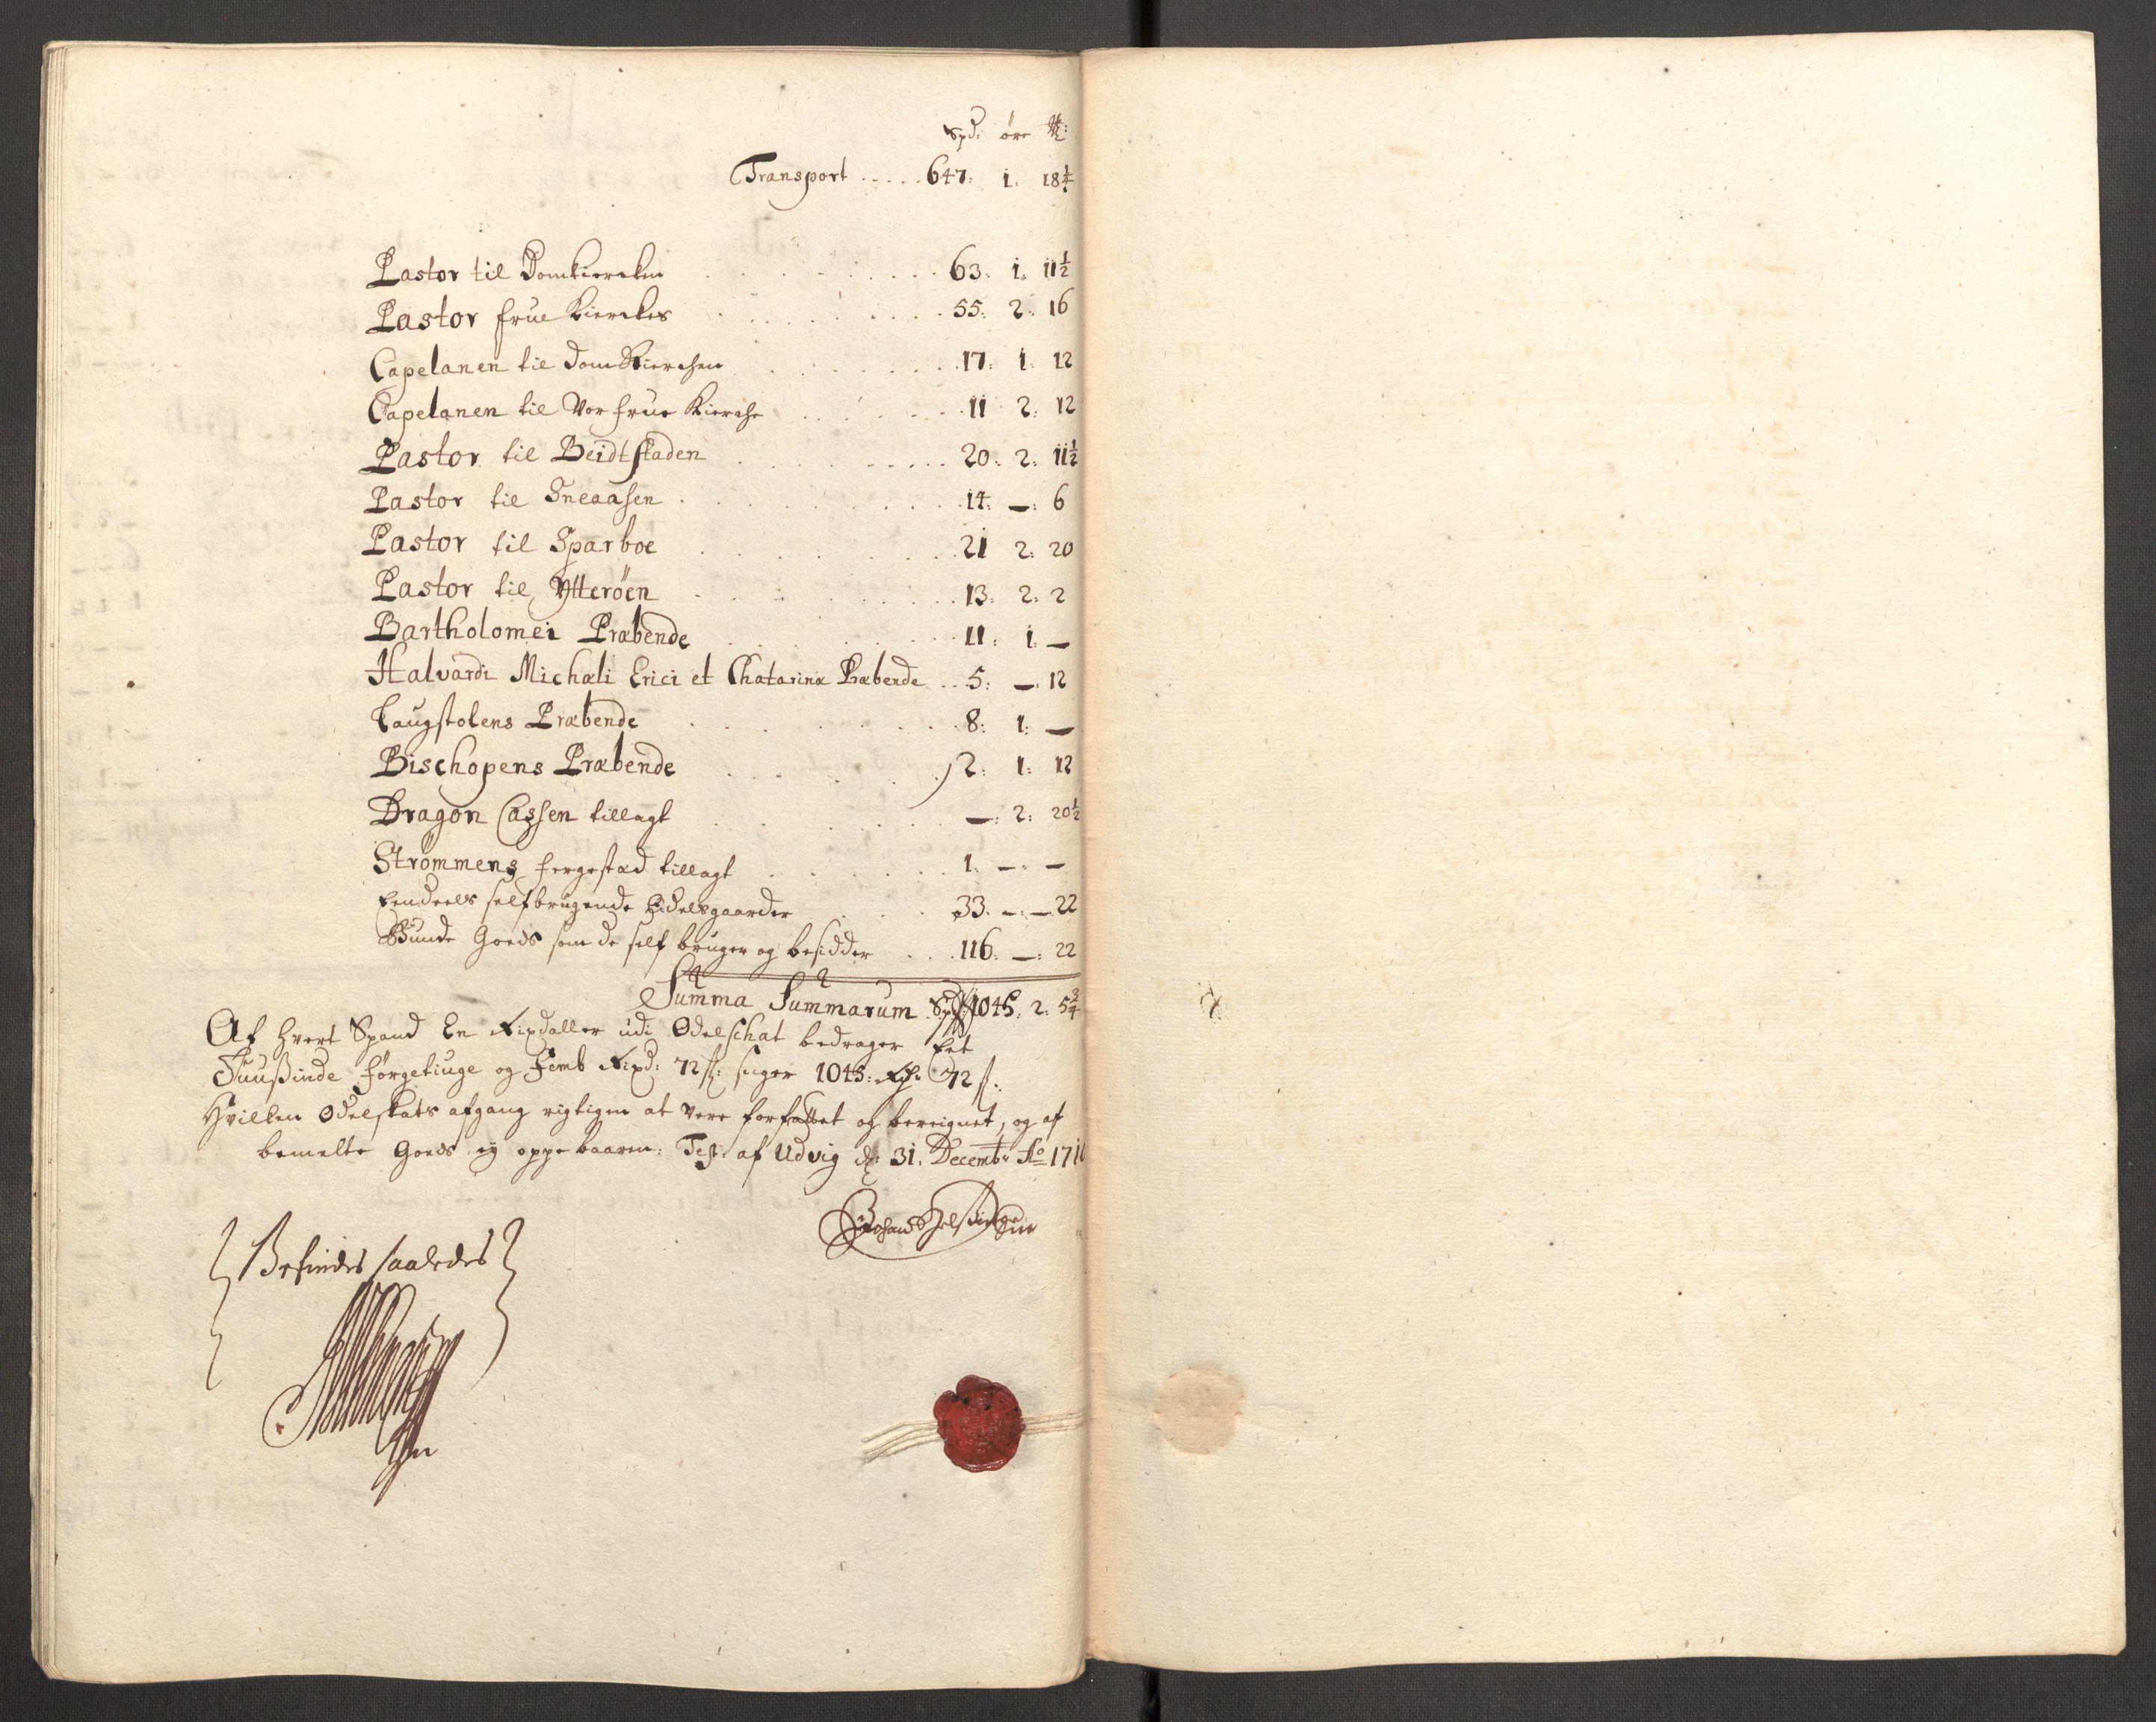 Spd: öre
Transport ..... 647: 1: 18¼
Pastor til Domkiercken 63: 1: 11½
Pastor frue Kierckes 55: 2: 16
Capelanen til Dom Kierchen 17: 1: 12
Capelanen til Vor frue Kierche 11 2: 12
Pastor til Beidtstaden 20: 2: 11½
Pastor til Sneaasen 14: —: 6
Pastor til Sparboe 21 2: 20
Pastor til Ytteröen 13: 2: 2
Bartholomei Præbende 11: 1: —
Halvardi Michæli Erici et Chatarinæ Præbende 5: —: 12
Laugstolens Præbende 8: 1: —
Bischopens Præbende 2: 1: 12
Dragon Cassen tillagt —: 2: 20½
Strömmens fergestad tillagt 1: —: —
Eendeels selfbrugende Gaarder 33: —: 22
Bunde Goeds som de self bruger og besidder 116: —: 22
Summa Summarum Spd 1045: 2: 5¾
Af hvert Spand En Rixdaller udi Odelschat bedrager Eet
Tuusinde förgetiuge og Femb Rixd: 72 s: siger 1045: Rd 72 s.
Hvilken Odelskats afgang rigtigen at vere forfattet og bereignet, og af
bemelte Goeds ey oppebaaren: Test: af Udvig d: 31. Decembr Ao 1710
Befindes saaledes